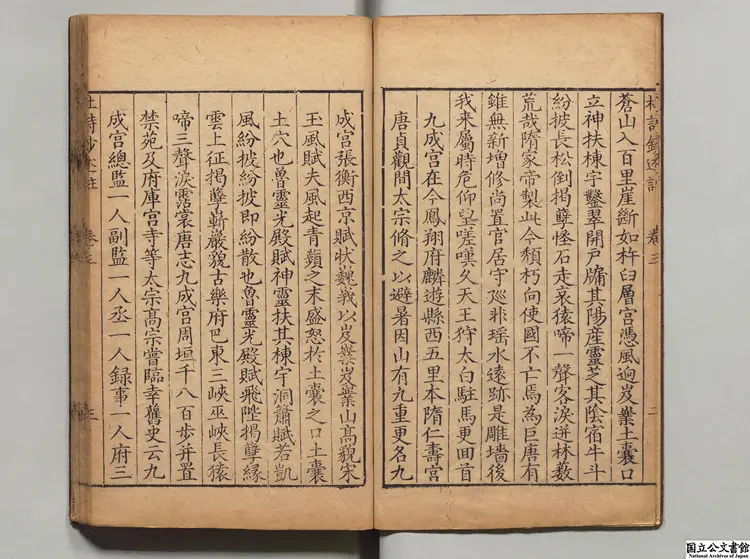 卷三
二
蒼山入百里崖斷如杵臼層宮憑風迥岌嶪土囊口
立神扶棟宇鑿翠開戶牖其陽産靈芝其陰宿牛斗
紛披長松倒揭孽怪石走哀猿啼一聲客淚迸林藪
荒哉隋家帝製此今頹朽向使國不亡焉為巨唐有
雖無新增修尚置官居守廵非瑶水遠跡是雕墻後
我來屬時危仰望嗟嘆久天王狩太白駐馬更回首
九成宮在今鳳翔府麟遊縣西五里本隋仁壽宮
唐貞觀間太宗脩之以避暑因山有九重更名九
成宮張衡西京賦狀巍峩以岌嶪岌嶪山高貌宋
玉風賦夫風起青蘋之末盛怒於土囊之口土囊
土穴也魯靈光殿賦神靈扶其棟宇洞蕭賦若凱
風紛披紛披即紛散也魯靈光殿賦飛陛揭孽縁
雲上征揭孽嶄巖貌古樂府巴東三峽巫峽長猿
啼三聲淚霑裳唐志九成宮周垣千八百步并置
禁苑及府庫宮寺等太宗高宗嘗臨幸舊史云九
成宮總監一人副監一人丞一人録事一人府三
卷三
国立公文書館
National Archives of Japan